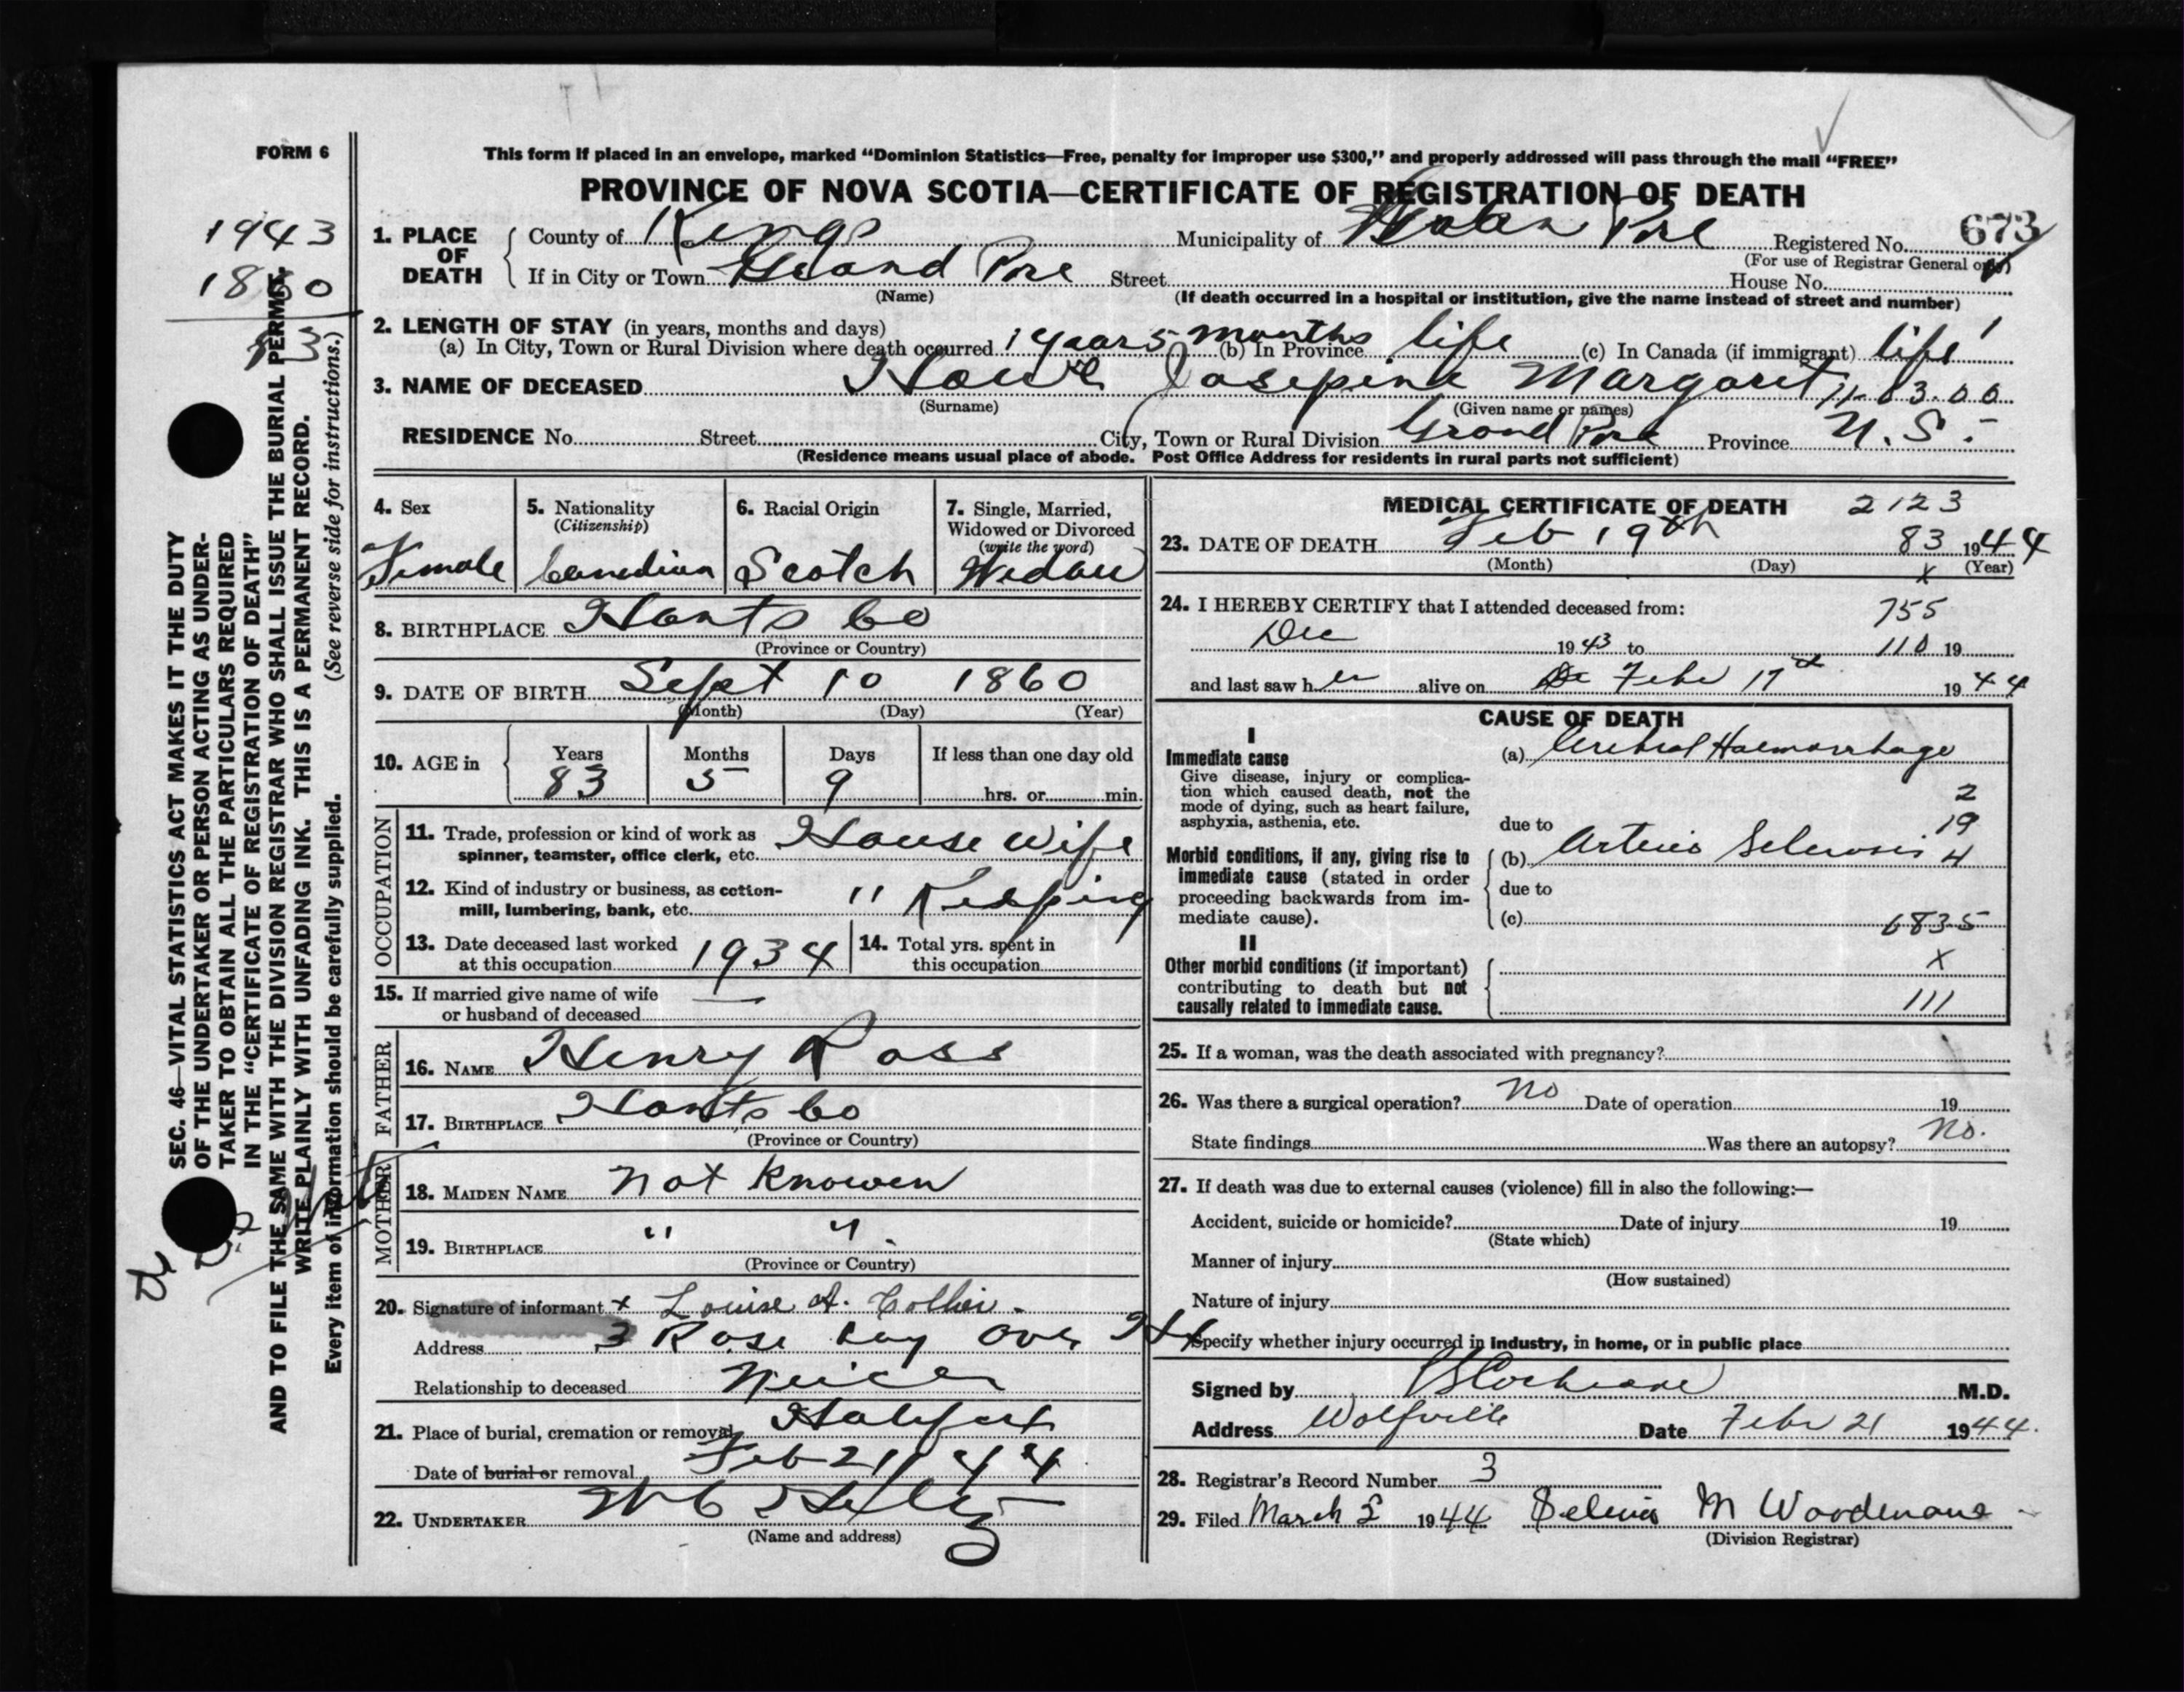 FORM 6
This form if placed in an envelope, marked “Dominion Statistics—Free, penalty for improper use $300,” and properly addressed will pass through the mail “FREE”
PROVINCE OF NOVA SCOTIA—CERTIFICATE OF REGISTRATION OF DEATH
1943
1860
83
1. PLACE OF DEATH County of Kings Municipality of Registered No. 673
(For use of Registrar General only)
If in City or Town Grand Pre Street House No.
(Name) (If death occurred in a hospital or institution, give the name instead of street and number)
2. LENGTH OF STAY (in years, months and days)
(a) In City, Town or Rural Division where death occurred 1 year 5 months (b) In Province life (c) In Canada (if immigrant) life
3. NAME OF DECEASED Howe Josepine Margaret 11.03.00
(Surname) (Given name or names)
RESIDENCE No. Street City, Town or Rural Division Grand Pre Province N.S.
(Residence means usual place of abode. Post Office Address for residents in rural parts not sufficient)
4. Sex 5. Nationality (Citizenship) 6. Racial Origin 7. Single, Married, Widowed or Divorced (write the word)
Female Canadian Scotch Widow
8. BIRTHPLACE Hants Co
(Province or Country)
9. DATE OF BIRTH Sept 10 1860
(Month) (Day) (Year)
10. AGE in Years Months Days If less than one day old
83 5 9 hrs. or min.
OCCUPATION
11. Trade, profession or kind of work as spinner, teamster, office clerk, etc. House wife
12. Kind of industry or business, as cotton-mill, lumbering, bank, etc. " Keeping
13. Date deceased last worked at this occupation 1934 14. Total yrs. spent in this occupation
15. If married give name of wife or husband of deceased —
FATHER
16. NAME Henry Ross
17. BIRTHPLACE Hants Co
(Province or Country)
MOTHER
18. MAIDEN NAME not Knowen
19. BIRTHPLACE " "
(Province or Country)
20. Signature of informant x Louise A. Collier.
Address 3 Rose bay ave Hfx
Relationship to deceased Neice
21. Place of burial, cremation or removal Halifax
Date of burial or removal Feb 21 / 44
22. UNDERTAKER
(Name and address)
MEDICAL CERTIFICATE OF DEATH 2123
23. DATE OF DEATH Feb 19th 83 1944
(Month) (Day) x (Year)
24. I HEREBY CERTIFY that I attended deceased from: 755
Dec 1943 to 110 19
and last saw her alive on Febr 17th 1944
CAUSE OF DEATH
I
Immediate cause (a) Cerebral Haemorrhage
Give disease, injury or complication which caused death, not the mode of dying, such as heart failure, asphyxia, asthenia, etc.
2
19
4
due to
Morbid conditions, if any, giving rise to immediate cause (stated in order proceeding backwards from immediate cause).
(b) Arterio Sclerosis
due to
(c) 6835
II
Other morbid conditions (if important) contributing to death but not causally related to immediate cause.
x
111
25. If a woman, was the death associated with pregnancy?
26. Was there a surgical operation? no Date of operation 19
State findings Was there an autopsy? no.
27. If death was due to external causes (violence) fill in also the following:—
Accident, suicide or homicide? Date of injury 19
(State which)
Manner of injury
(How sustained)
Nature of injury
Specify whether injury occurred in industry, in home, or in public place
Signed by Cochrane M.D.
Address Wolfville Date Febr 21 1944.
28. Registrar's Record Number 3
29. Filed March 2 1944 M Woodman
(Division Registrar)
SEC. 46—VITAL STATISTICS ACT MAKES IT THE DUTY
OF THE UNDERTAKER OR PERSON ACTING AS UNDER-
TAKER TO OBTAIN ALL THE PARTICULARS REQUIRED
IN THE “CERTIFICATE OF REGISTRATION OF DEATH”
AND TO FILE THE SAME WITH THE DIVISION REGISTRAR WHO SHALL ISSUE THE BURIAL PERMIT.
WRITE PLAINLY WITH UNFADING INK. THIS IS A PERMANENT RECORD.
Every item of information should be carefully supplied. (See reverse side for instructions.)